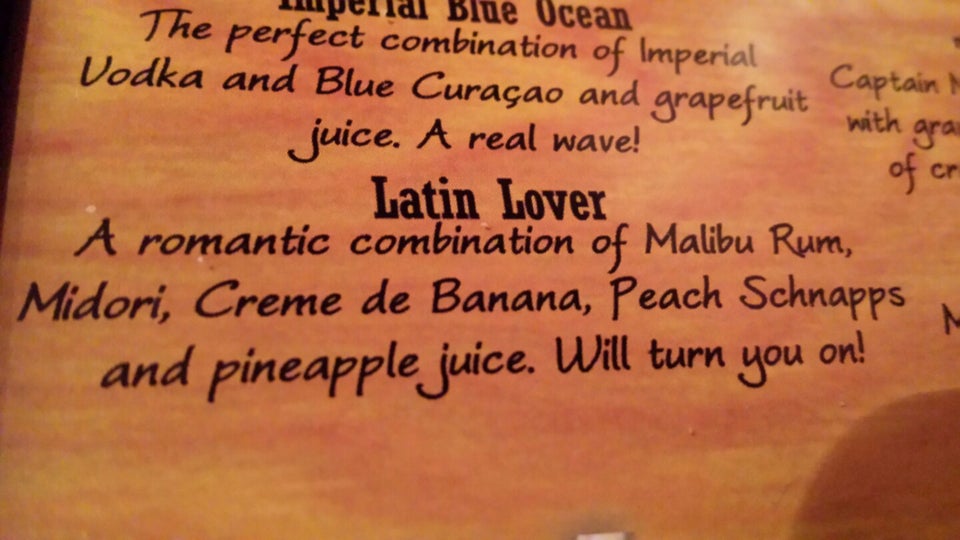 Imperial Blue Ocean
The perfect combination of Imperial
Vodka and Blue Curaçao and grapefruit
juice. A real wave!
Latin Lover
A romantic combination of Malibu Rum,
Midori, Creme de Banana, Peach Schnapps
and pineapple juice. Will turn you on!
Captain
with
of